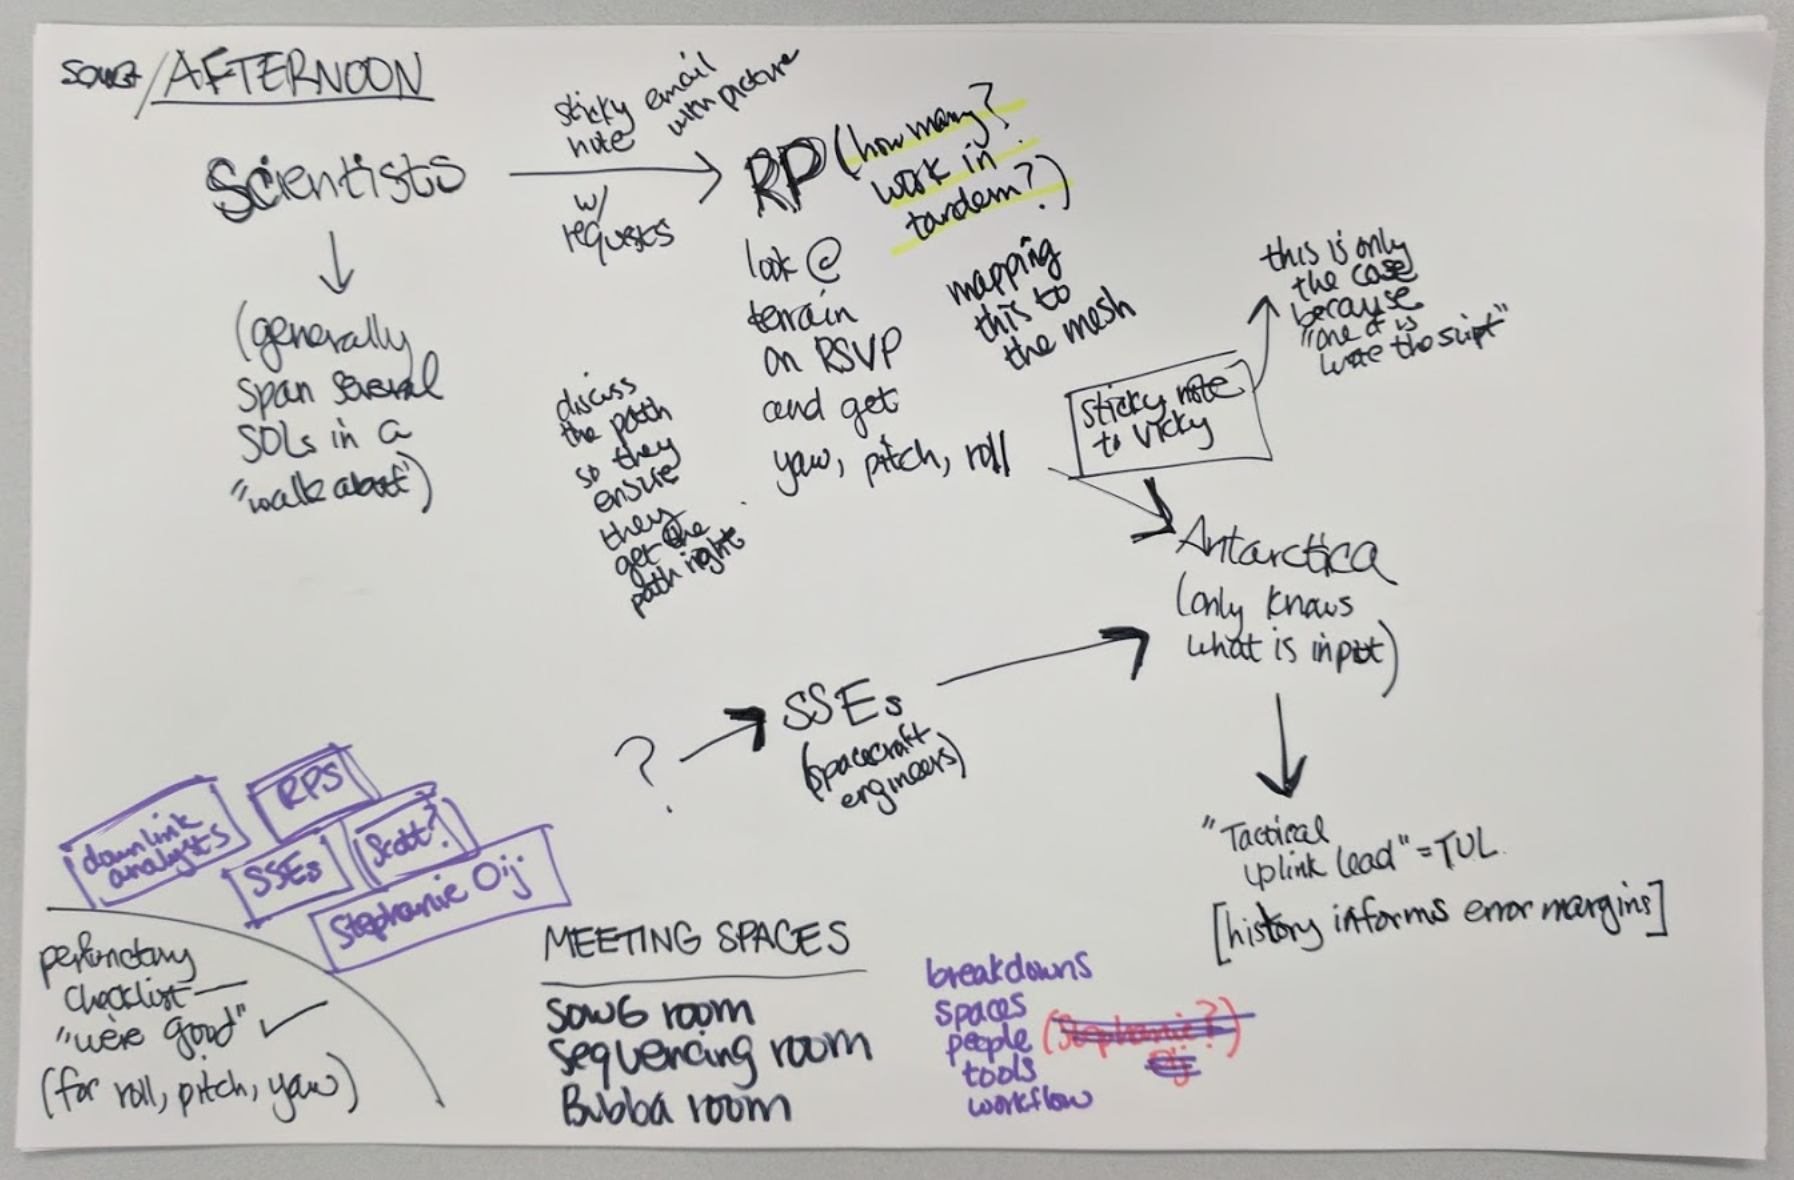 SOWG/AFTERNOON
Scientists
(generally
span several
SOLs in a
"walk about")
sticky
note
email
with picture
w/
requests
RP (how many?
work in
tandem?)
look @
terrain
on RSVP
and get
yaw, pitch, roll
mapping
this to
the mesh
discuss
the path
so they
ensure
they
get the
path right
sticky note
to Vicky
this is only
the case
because
"one of is
wrote the script"
Antarctica
(only knows
what is input)
? SSEs
(spacecraft
engineers)
"Tactical
uplink lead" = TUL
[history informs error margins]
downlink
analysts
RPS
SSEs
Scott?
Stephanie Oij
perfunctary
checklist—
"we're good" ✓
(for roll, pitch, yaw)
MEETING SPACES
SOWG room
sequencing room
Bubba room
breakdowns
spaces
people (Stephanie?)
Oij
tools
workflow